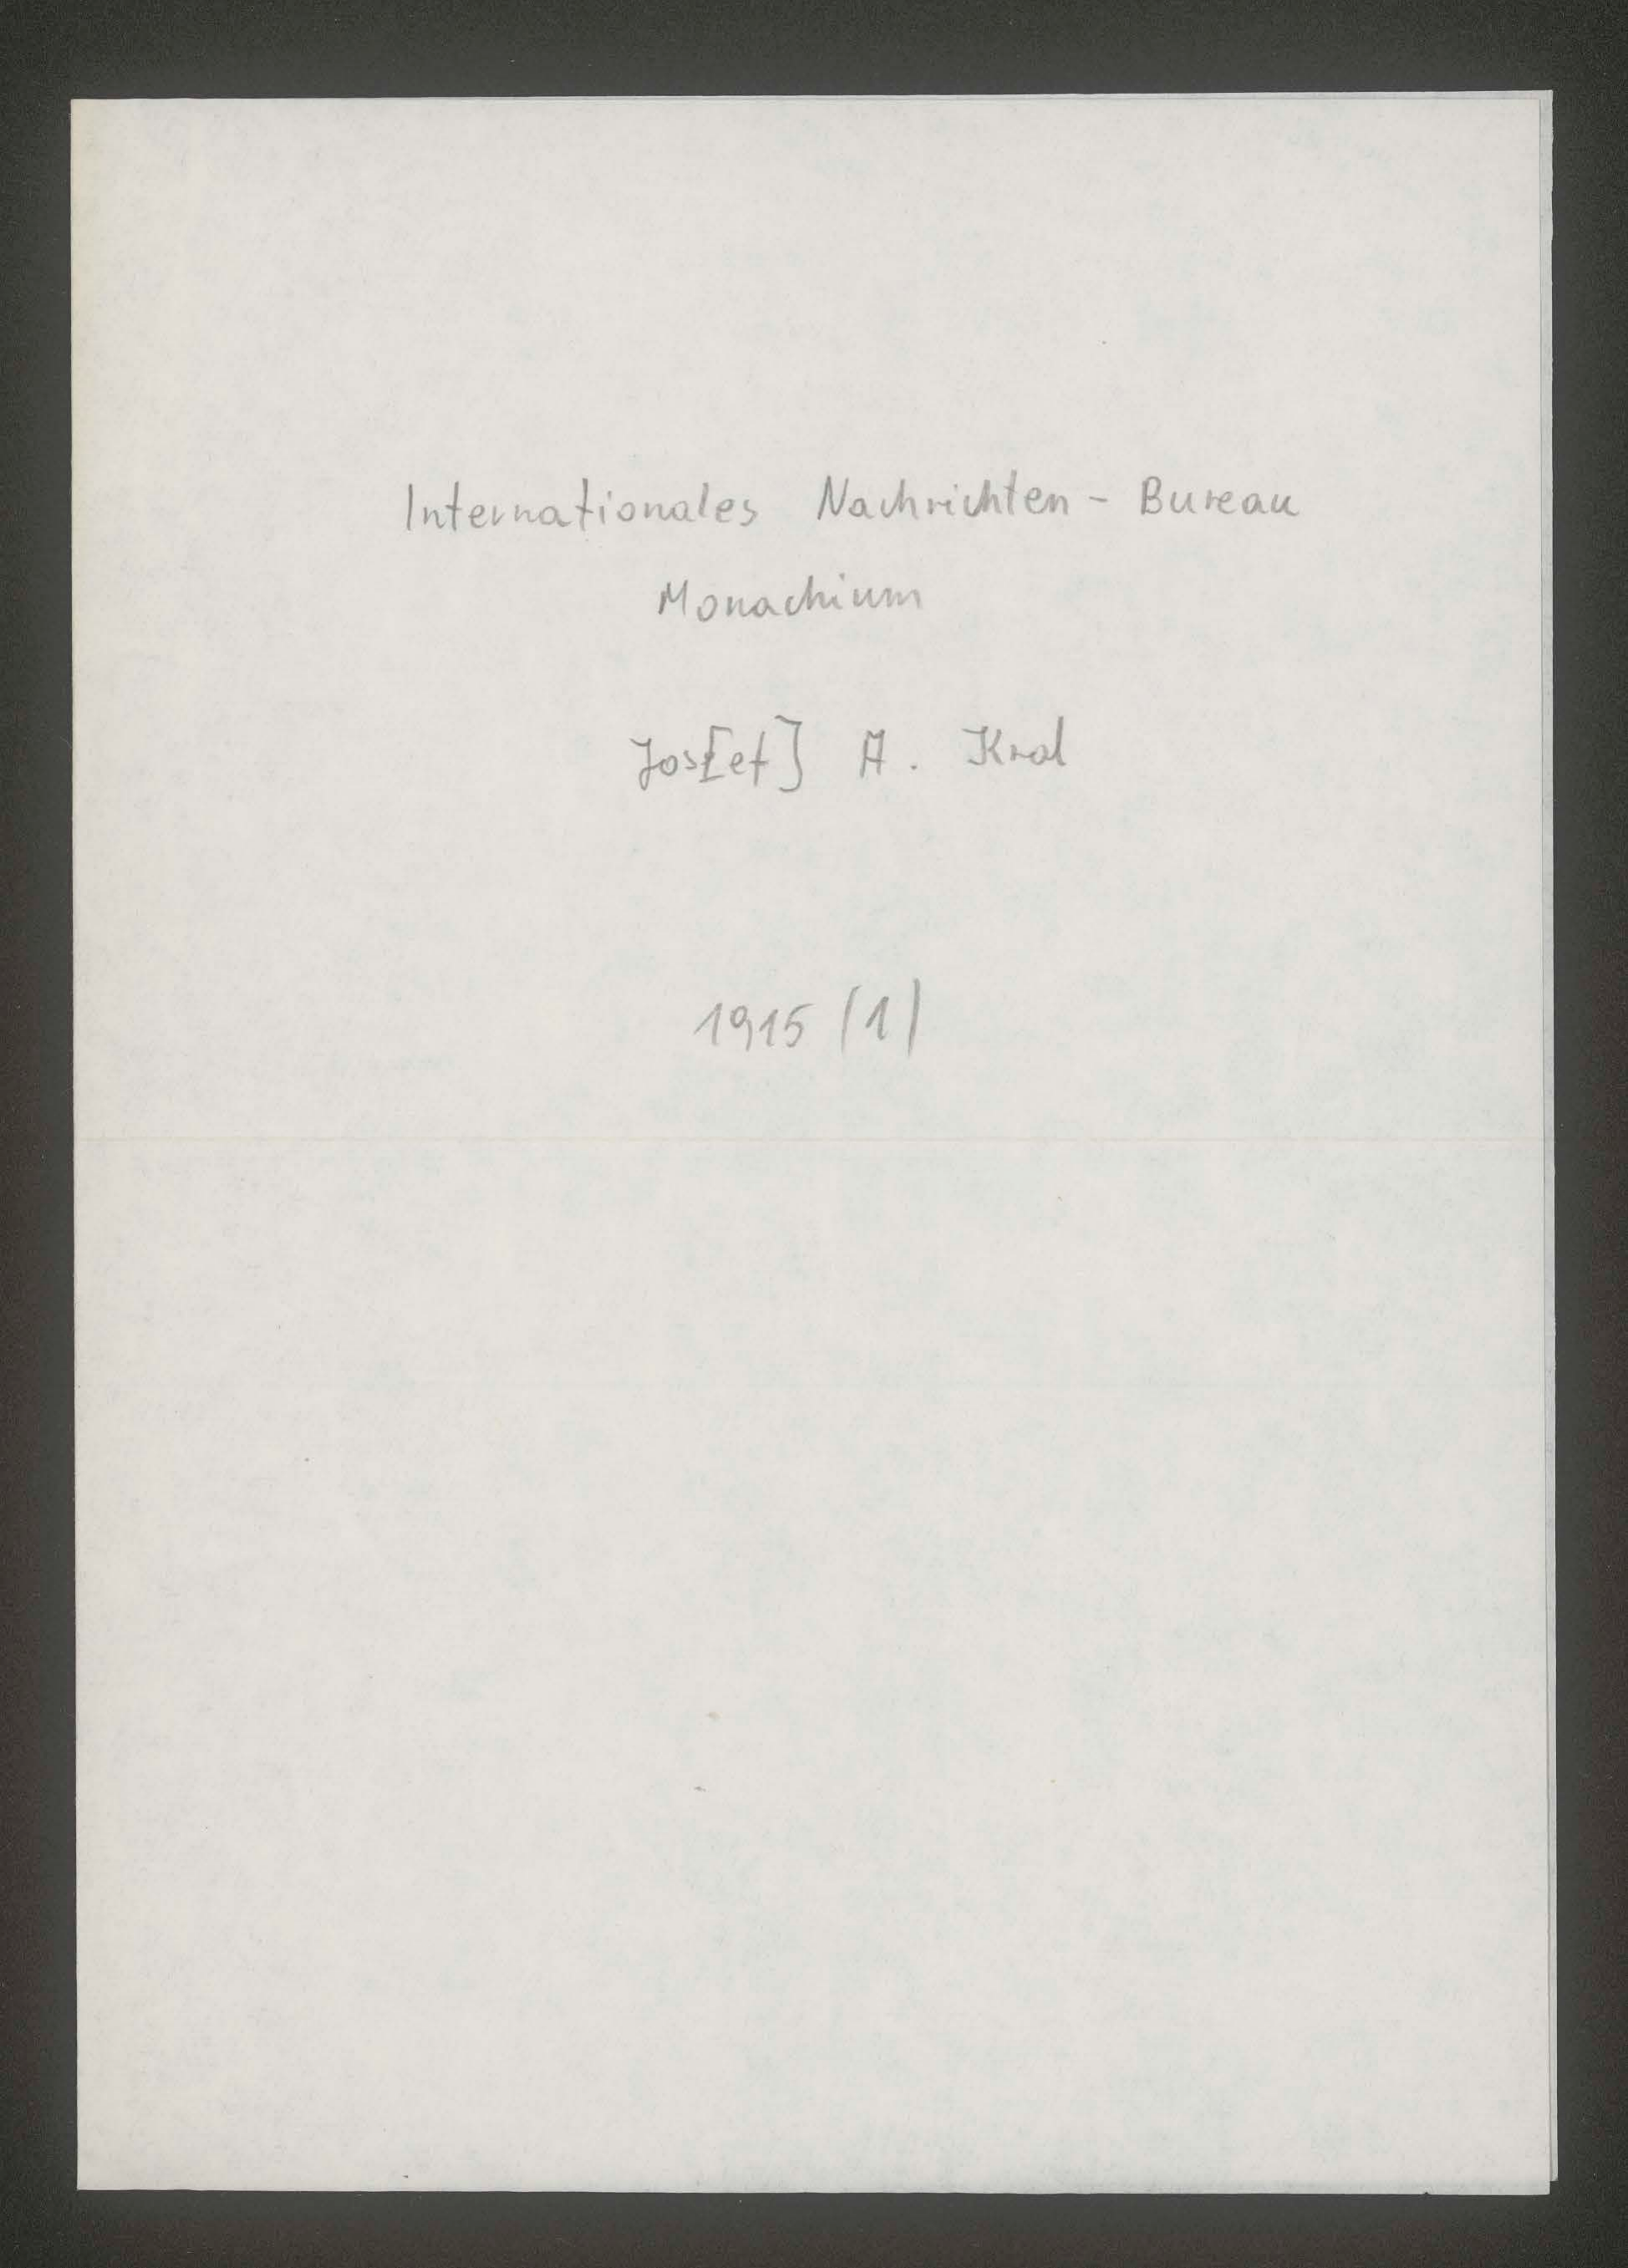 Internationales Nachrichten - Bureau
Monachium
Jos[ef] A. Kral
1915 (1)